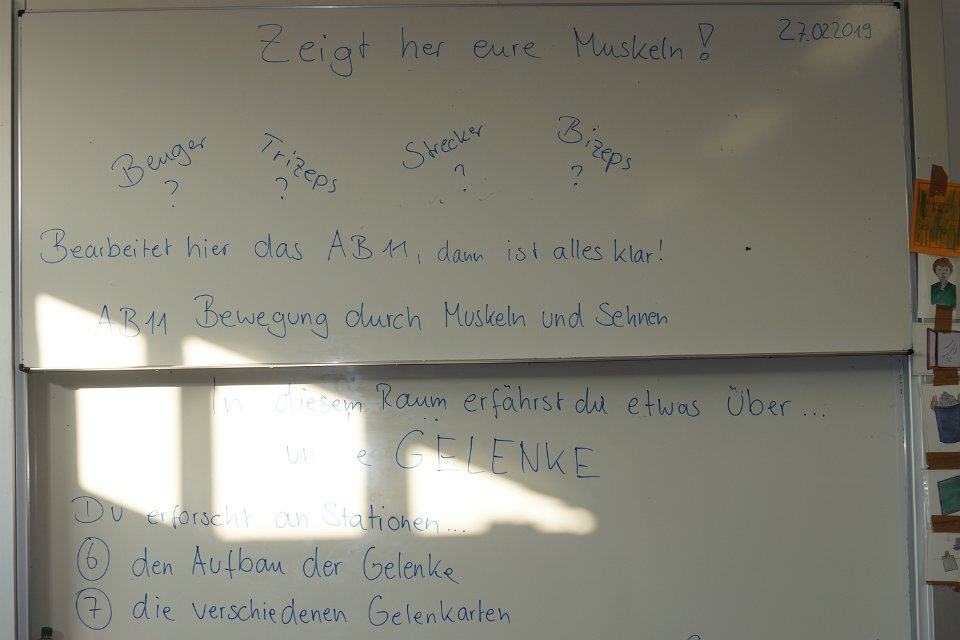 Zeigt her eure Muskeln! 27.02.2019
Beuger Trizeps Strecker Bizeps
? ? ? ?
Bearbeitet hier das AB 11, dann ist alles klar!
AB11 Bewegung durch Muskeln und Sehnen
In diesem Raum erfährst du etwas Über...
GELENKE
Du erforscht an Stationen...
6 den Aufbau der Gelenke
7 die verschiedenen Gelenkarten